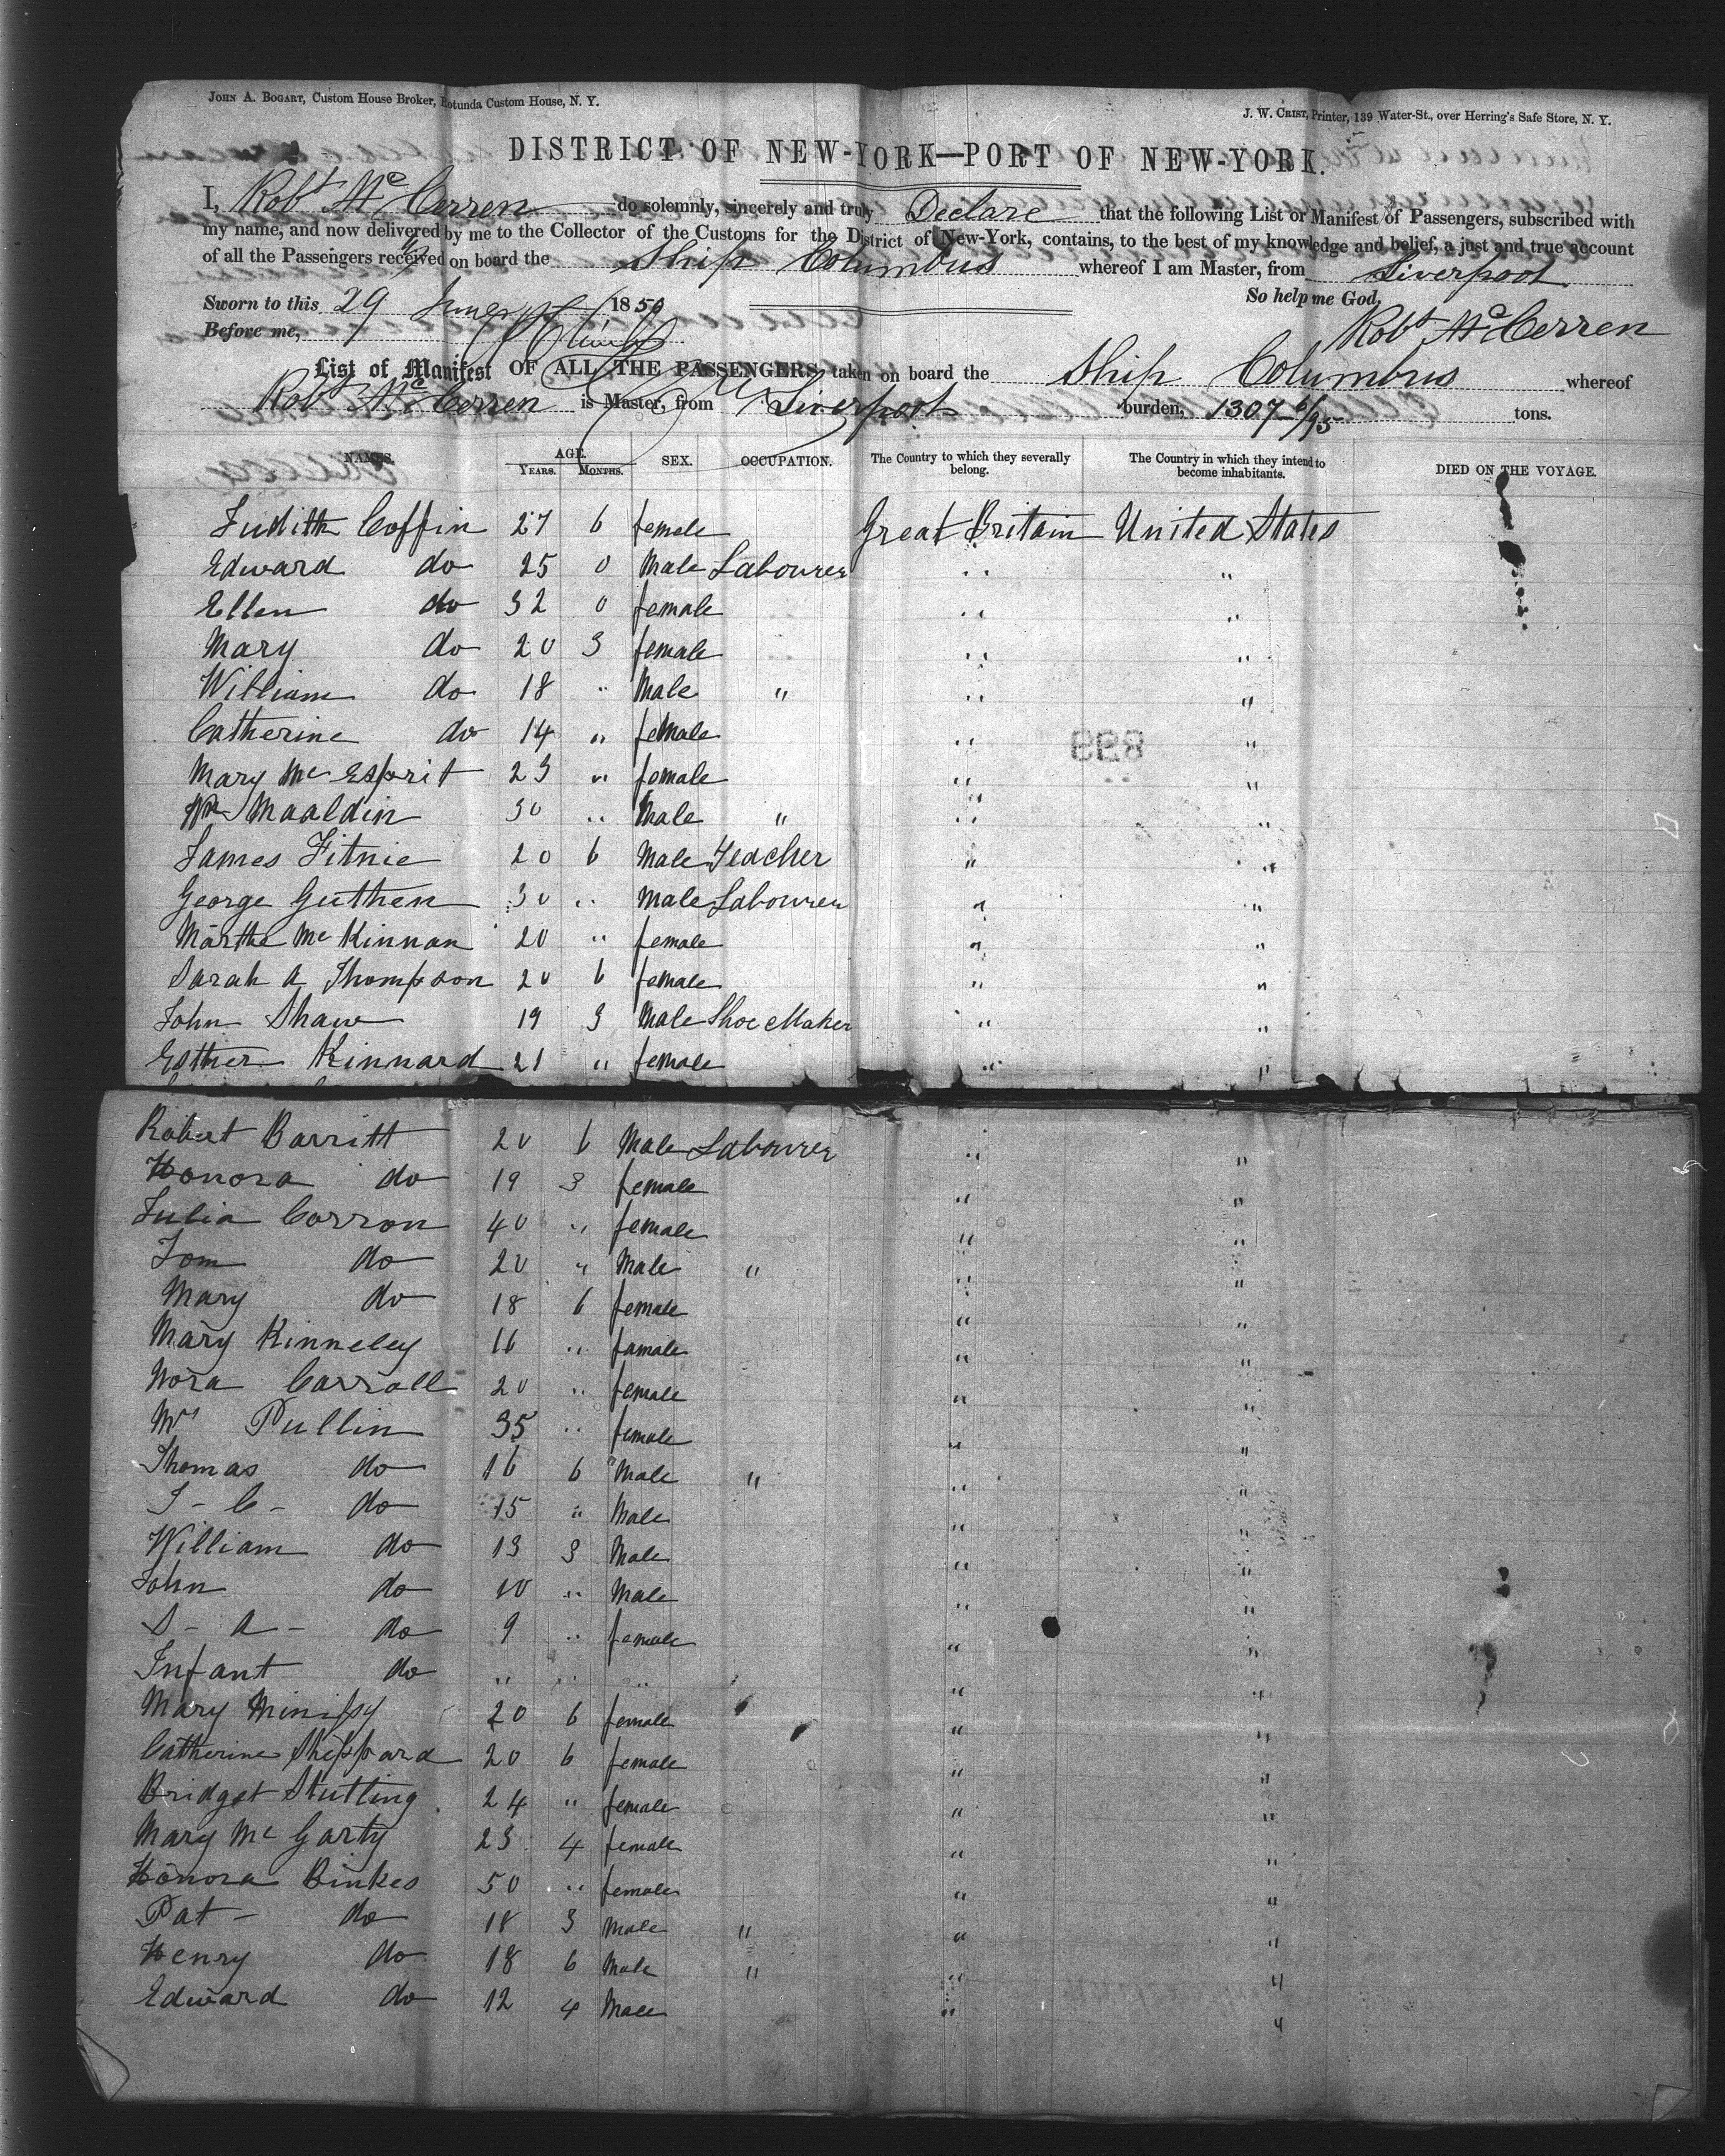 JOHN A. BOGART, Custom House Broker, Rotunda Custom House, N. Y.
J. W. CRIST, Printer, 139 Water-St., over Herring's Safe Store, N. Y.
DISTRICT OF NEW-YORK—PORT OF NEW-YORK.
I, Robt Mc Cerren do solemnly, sincerely and truly Declare that the following List or Manifest of Passengers, subscribed with
my name, and now delivered by me to the Collector of the Customs for the District of New-York, contains, to the best of my knowledge and belief, a just and true account
of all the Passengers received on board the Ship Columbus whereof I am Master, from Liverpool
So help me God,
Sworn to this 29 June 1850
Robt Mc Cerren
Before me,
List or Manifest OF ALL THE PASSENGERS taken on board the Ship Columbus whereof
Robt Mc Cerren is Master, from Liverpool burden, 1307 6/95 tons.
NAMES. AGE. YEARS. MONTHS. SEX. OCCUPATION. The Country to which they severally belong. The Country in which they intend to become inhabitants. DIED ON THE VOYAGE.
Judith Coffin 27 6 female Great Britain United States
Edward do 25 0 Male Labourer " "
Ellen do 32 0 female " "
Mary do 20 3 female " "
William do 18 " Male " " "
Catherine do 14 " female " "
Mary Mc Esprit 23 " female " "
Wm Maaldin 30 " Male " " "
James Fitnie 20 6 Male Teacher " "
George Guthen 30 " Male Labourer " "
Martha Mc Kinnan 20 " female " "
Sarah A Thompson 20 6 female " "
John Shaw 19 3 Male Shoe Maker " "
Esther Kinnard 21 " female " "
Robert Barritt 20 6 Male Labourer " "
Honora do 19 3 female " "
Julia Corron 40 " female " "
Tom do 20 " Male " " "
Mary do 18 6 female " "
Mary Kinneley 16 " famale " "
Nora Carroll 20 " female " "
Mrs Pullin 35 " female " "
Thomas do 16 6 Male " " "
J - C - do 15 " Male " "
William do 13 3 Male " "
John do 10 " Male " "
S - A - do 9 " female " "
Infant do " " " " "
Mary 20 6 female " "
Catherine Sheppard 20 6 female " "
Bridget Stutling 24 " female " "
Mary Mc Garty 23 4 female " "
Honora Binkes 50 " female " "
Pat - do 18 3 Male " " "
Henry do 18 6 Male " " "
Edward do 12 4 Male " "